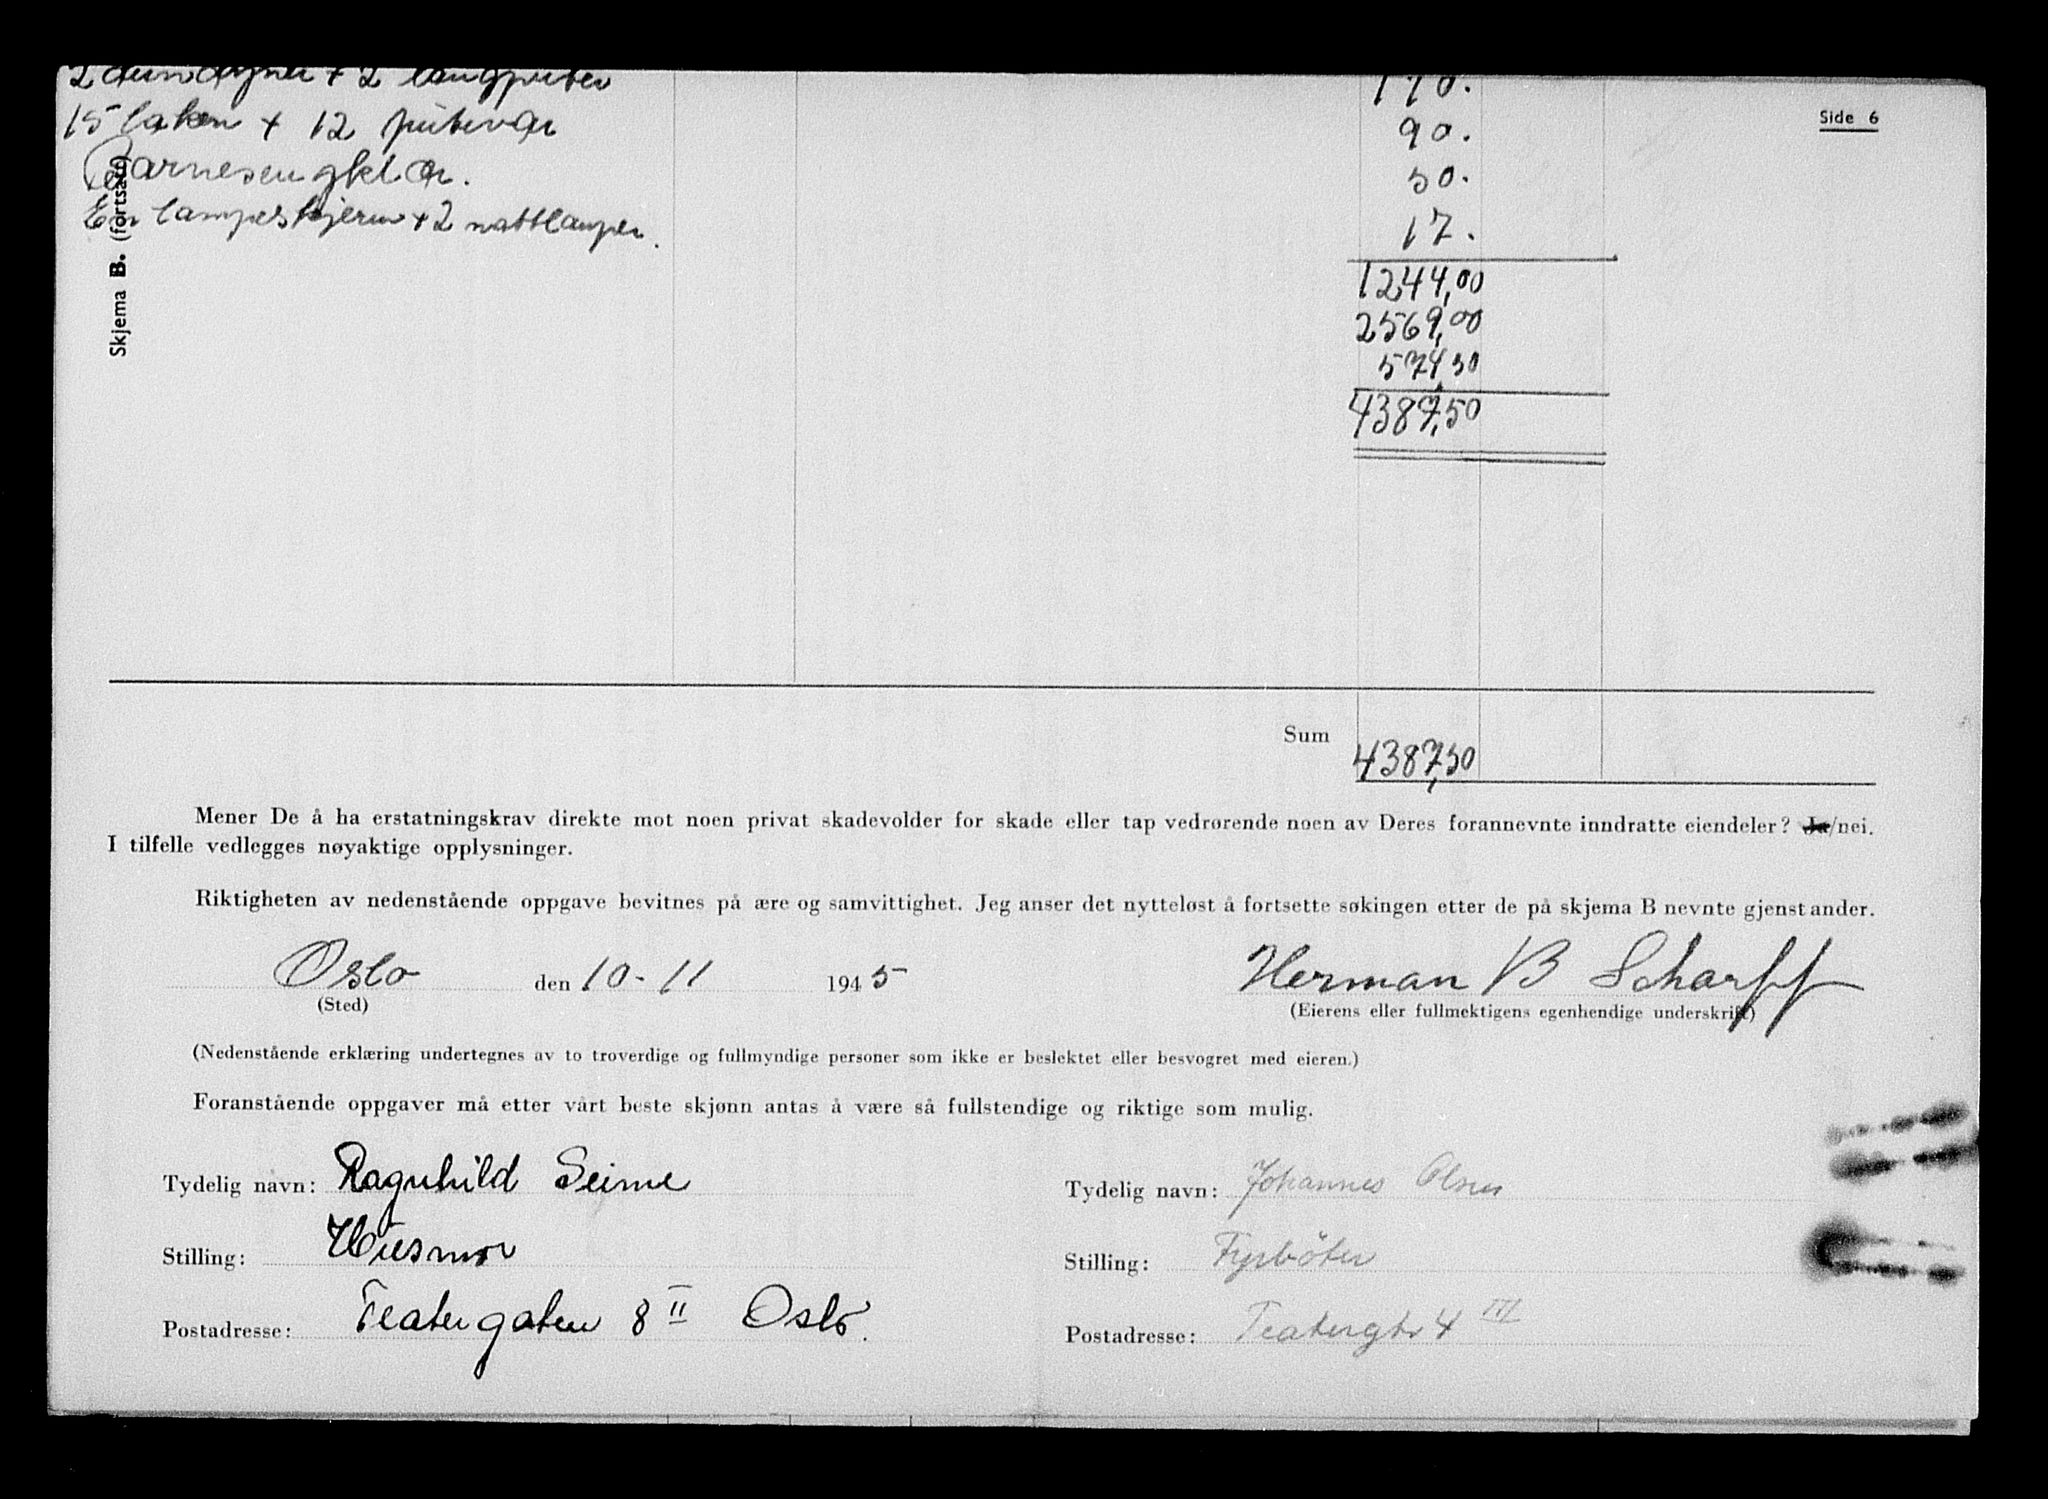 2 dundyner + 2 langputer 170.
Side 6
15 laken + 12 putevar 90.
Barnesengklær. 50.
En lampeskjerm + 2 nattlamper. 17.
Skjema B. (fortsatt)
1244,00
2569,00
574,50
4387,50
Sum
4387,50
Mener De å ha erstatningskrav direkte mot noen privat skadevolder for skade eller tap vedrørende noen av Deres forannevnte inndratte eiendeler? Ja/nei.
I tilfelle vedlegges nøyaktige opplysninger.
Riktigheten av nedenstående oppgave bevitnes på ære og samvittighet. Jeg anser det nytteløst å fortsette søkingen etter de på skjema B nevnte gjenstander.
Oslo den 10-11 1945 Herman B Scharff
(Sted) (Eierens eller fullmektigens egenhendige underskrift)
(Nedenstående erklæring undertegnes av to troverdige og fullmyndige personer som ikke er beslektet eller besvogret med eieren.)
Foranstående oppgaver må etter vårt beste skjønn antas å være så fullstendige og riktige som mulig.
Tydelig navn: Ragnhild Seime Tydelig navn: Johannes Olsen
Stilling: Husmor Stilling: Fyrböter
Postadresse: Teatergaten 8 II Oslo. Postadresse: Teatergt. 4 III